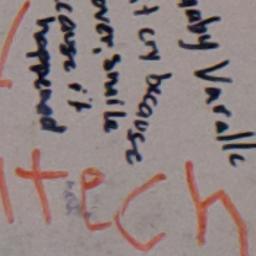 aby Varalle
t cry because
over, smile
cause it
happened
tech